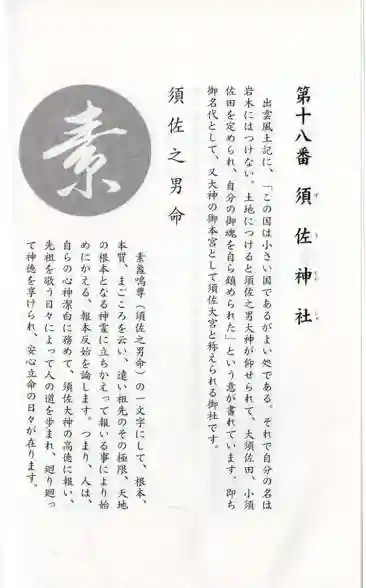 第十八番 須佐神社
出雲風土記に、「この国は小さい国であるがよい処である。それで自分の名は
岩木にはつけない。土地につけると須佐之男大神が仰せられて、大須佐田、小須
佐田を定められ、自分の御魂を自ら鎮められた」という意が書れています。即ち
御名代として、又大神の御本宮として須佐大宮と称えられる御社です。
須佐之男命
素
素盞嗚尊（須佐之男命）の一文字にして、根本、
本質、まごころを云い、遠い祖先のその極限、天地
の根本となる神霊に立ちかえって報いる事により始
めにかえる、根本反始を論します。つまり、人は、
自らの心神潔白に務めて、須佐大神の高徳に報い、
先祖を敬う日々によって人の道を歩まれ、廻り廻っ
て神徳を享けられ、安心立命の日々が在ります。